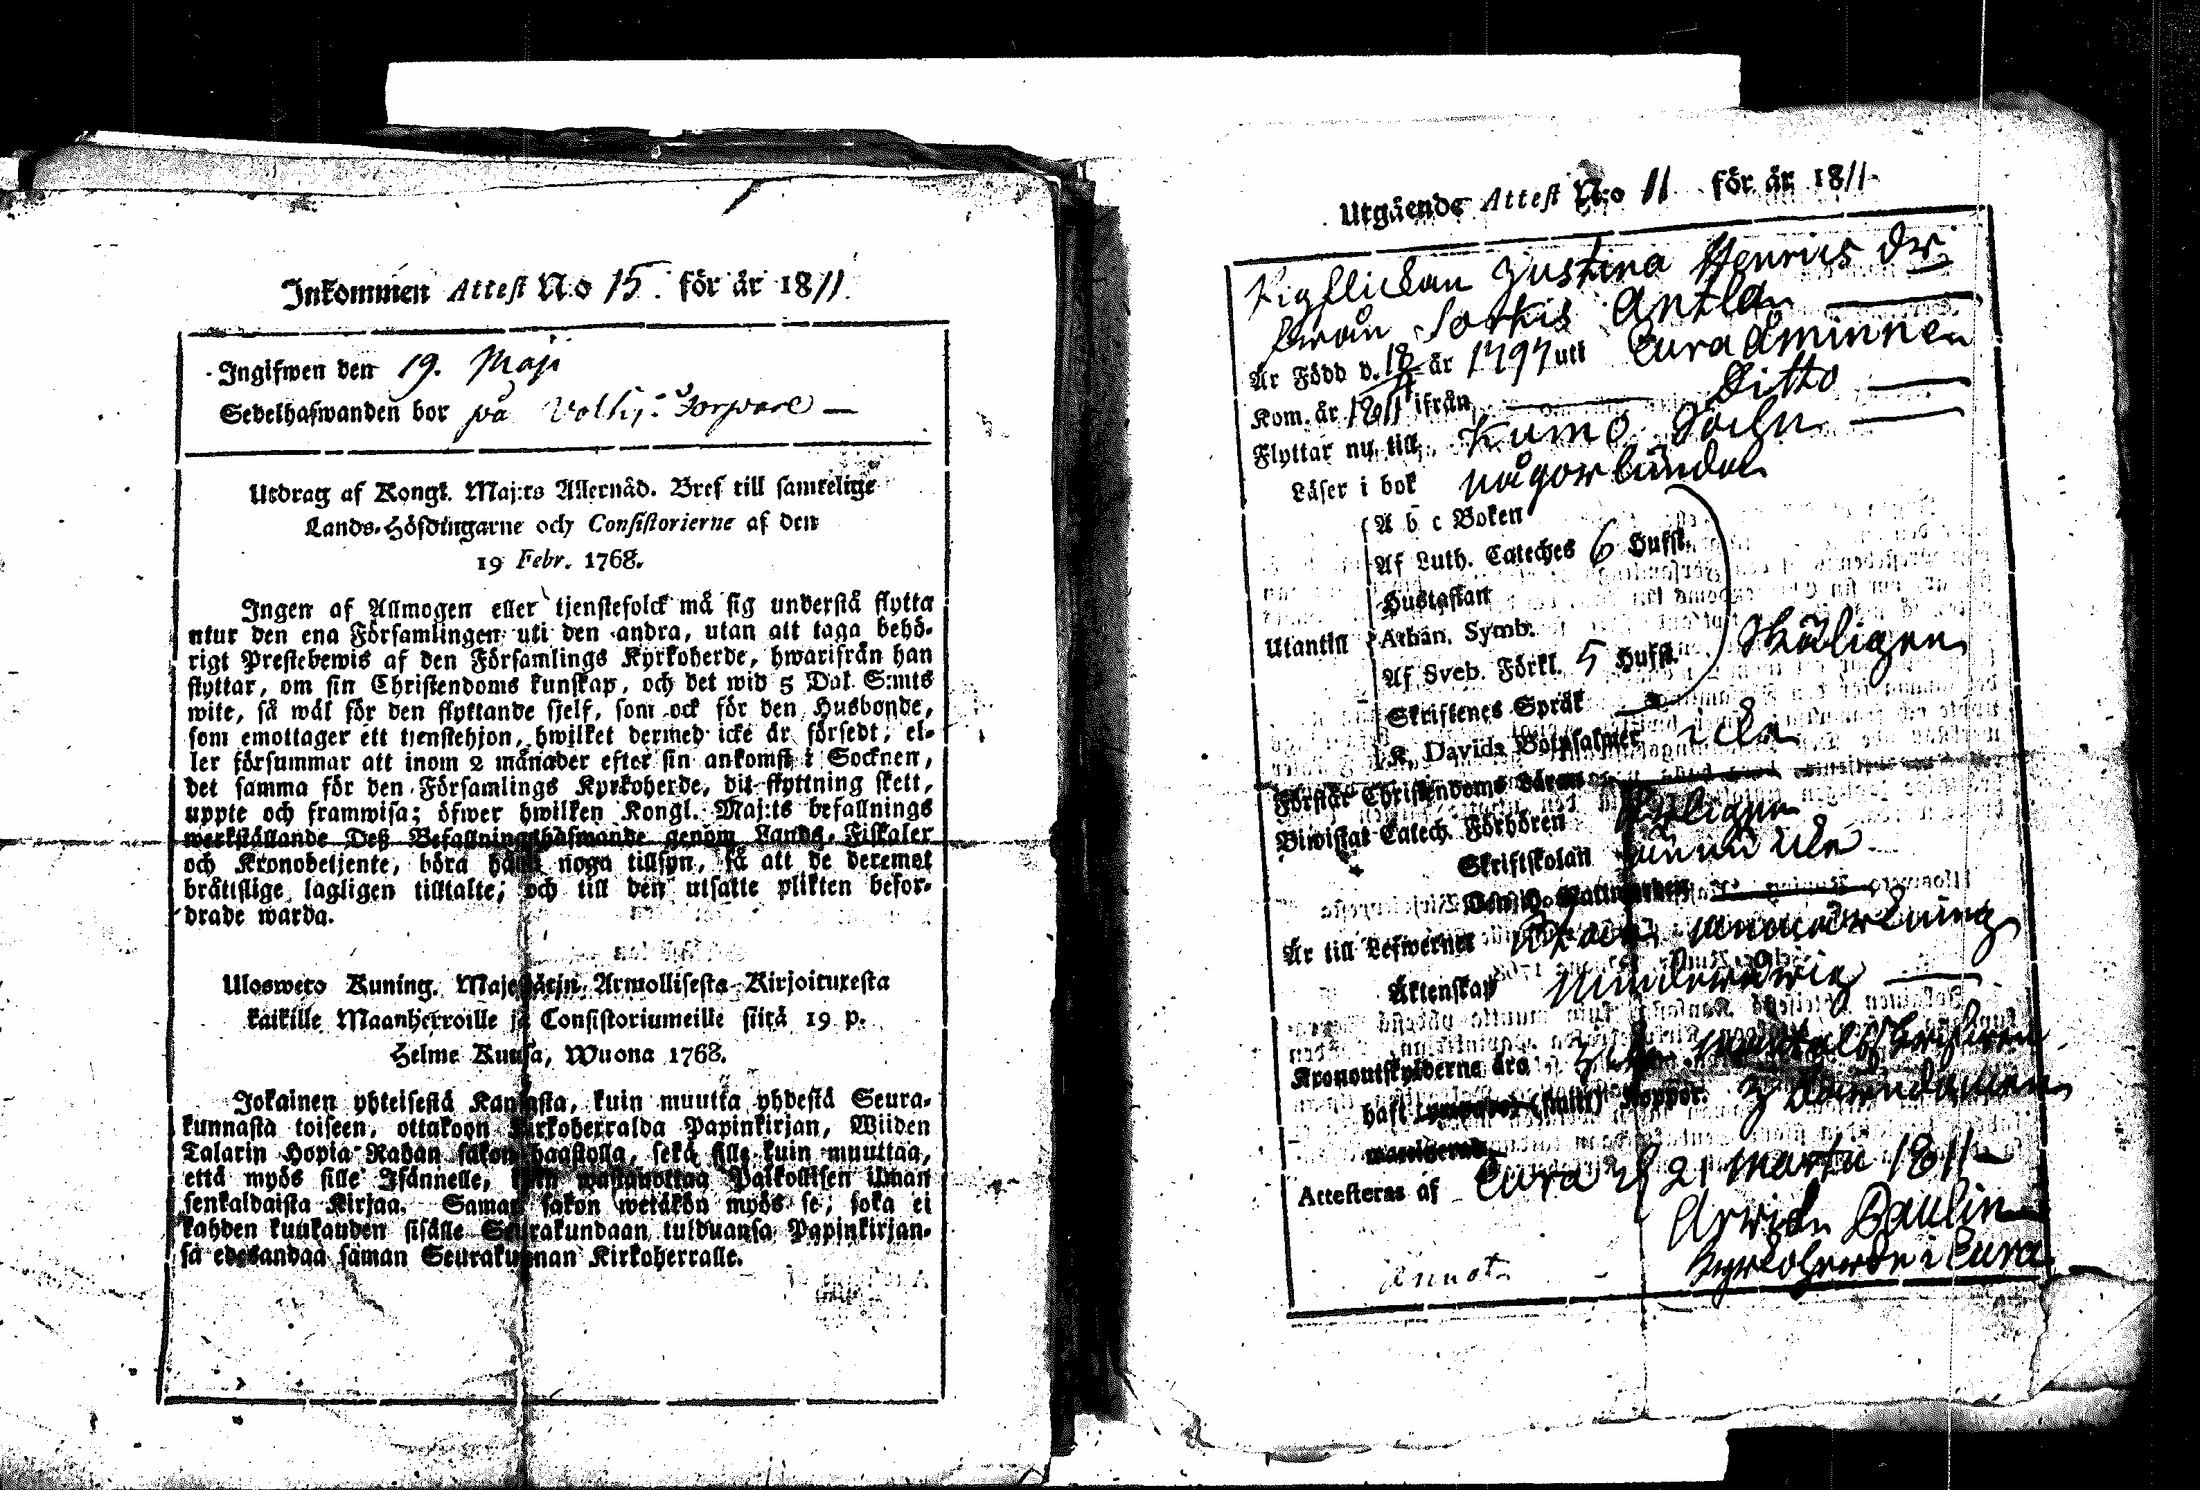 Inkommen Attest N:o 15. för år 1811.
Ingifwen den 19. Maji
Sedelhafwanden bor på Torpare —
Utdrag af Kongl. Maj:ts Allernåd. Bref till samtelige
Lands-Höfdingarne och Consistorierne af den
19 Febr. 1768.
Ingen af Allmogen eller tjenstefolck må sig understå flytta
utur den ena Församlingen uti den andra, utan att taga behö-
rigt Prestebewis af den Församlings Kyrkoherde, hwarifrån han
flyttar, om sin Christendoms kunskap, och det wid 5 Dal. S:mts
wite, så wäl för den flyttande sjelf, som ock för den Husbonde,
som emottager ett tjenstehjon, hwilket dermed icke är försedt, el-
ler försummar att inom 2 månader efter sin ankomst i Socknen,
det samma för den Församlings Kyrkoherde, dit flyttning skett,
uppte och framwisa; öfwer hwilken Kongl. Maj:ts befallnings
werkställande Deß Befallningshafwande genom Lands-Fiskaler
och Kronobetjente, böra hafwa noga tillsyn, så att de deremot
bråttslige lagligen tilltalte, och till den utsatte plikten befor-
drade warda.
Ulosweto Kuning. Majestätin Armollisesta Kirjoituxesta
kaikille Maanherroille ja Consistoriumeille siitä 19 p.
Helme Kuusa, Wuona 1768.
Jokainen yhteisestä Kansasta, kuin muutta yhdestä Seura-
kunnasta toiseen, ottakoon Kirkoherralda Papinkirjan, Wiiden
Talarin Hopia Rahan sakon haastolla, sekä sille kuin muuttaa,
että myös sille Isännelle, kuin wastanottaa Palkollisen ilman
senkaldaista Kirjaa. Saman sakon wetäkön myös se, joka ei
kahden kuukauden sisälle Seurakundaan tulduansa Papinkirjan-
sa edesandaa saman Seurakunnan Kirkoherralle.
Utgående Attest N:o 11 för år 1811.
Pigflickan Justina Henrics dr
ifrån Sorkis Anttla —
Är Född d. 18 år 1797 uti Eura åminne
Kom. år 1811 ifrån — Ditto —
Flyttar nu till Kumo Sochn —
Läser i bok någorlunda
A b c Boken
Af Luth. Cateches 6 Hufst.
Hustaflan
Utantill Athan. Symb. Skäligen
Af Sveb. Förkl. 5 Hufst.
Skriftenes Språk
K. Davids Botpsalmer icke
Förstår Christendoms Läran
Biwistat Catech. Förhören Årligen
Skriftskolan ännu icke
H. Nattwarden
Är till Lefwernet utan anmärkning
Äktenskap minderårig —
Kronoutskylderne äro
haft Koppor.
Attesteras af Eura d 21 Martii 1811 —
Arvid Paulin
Kyrkoherde i Eura
Annot.